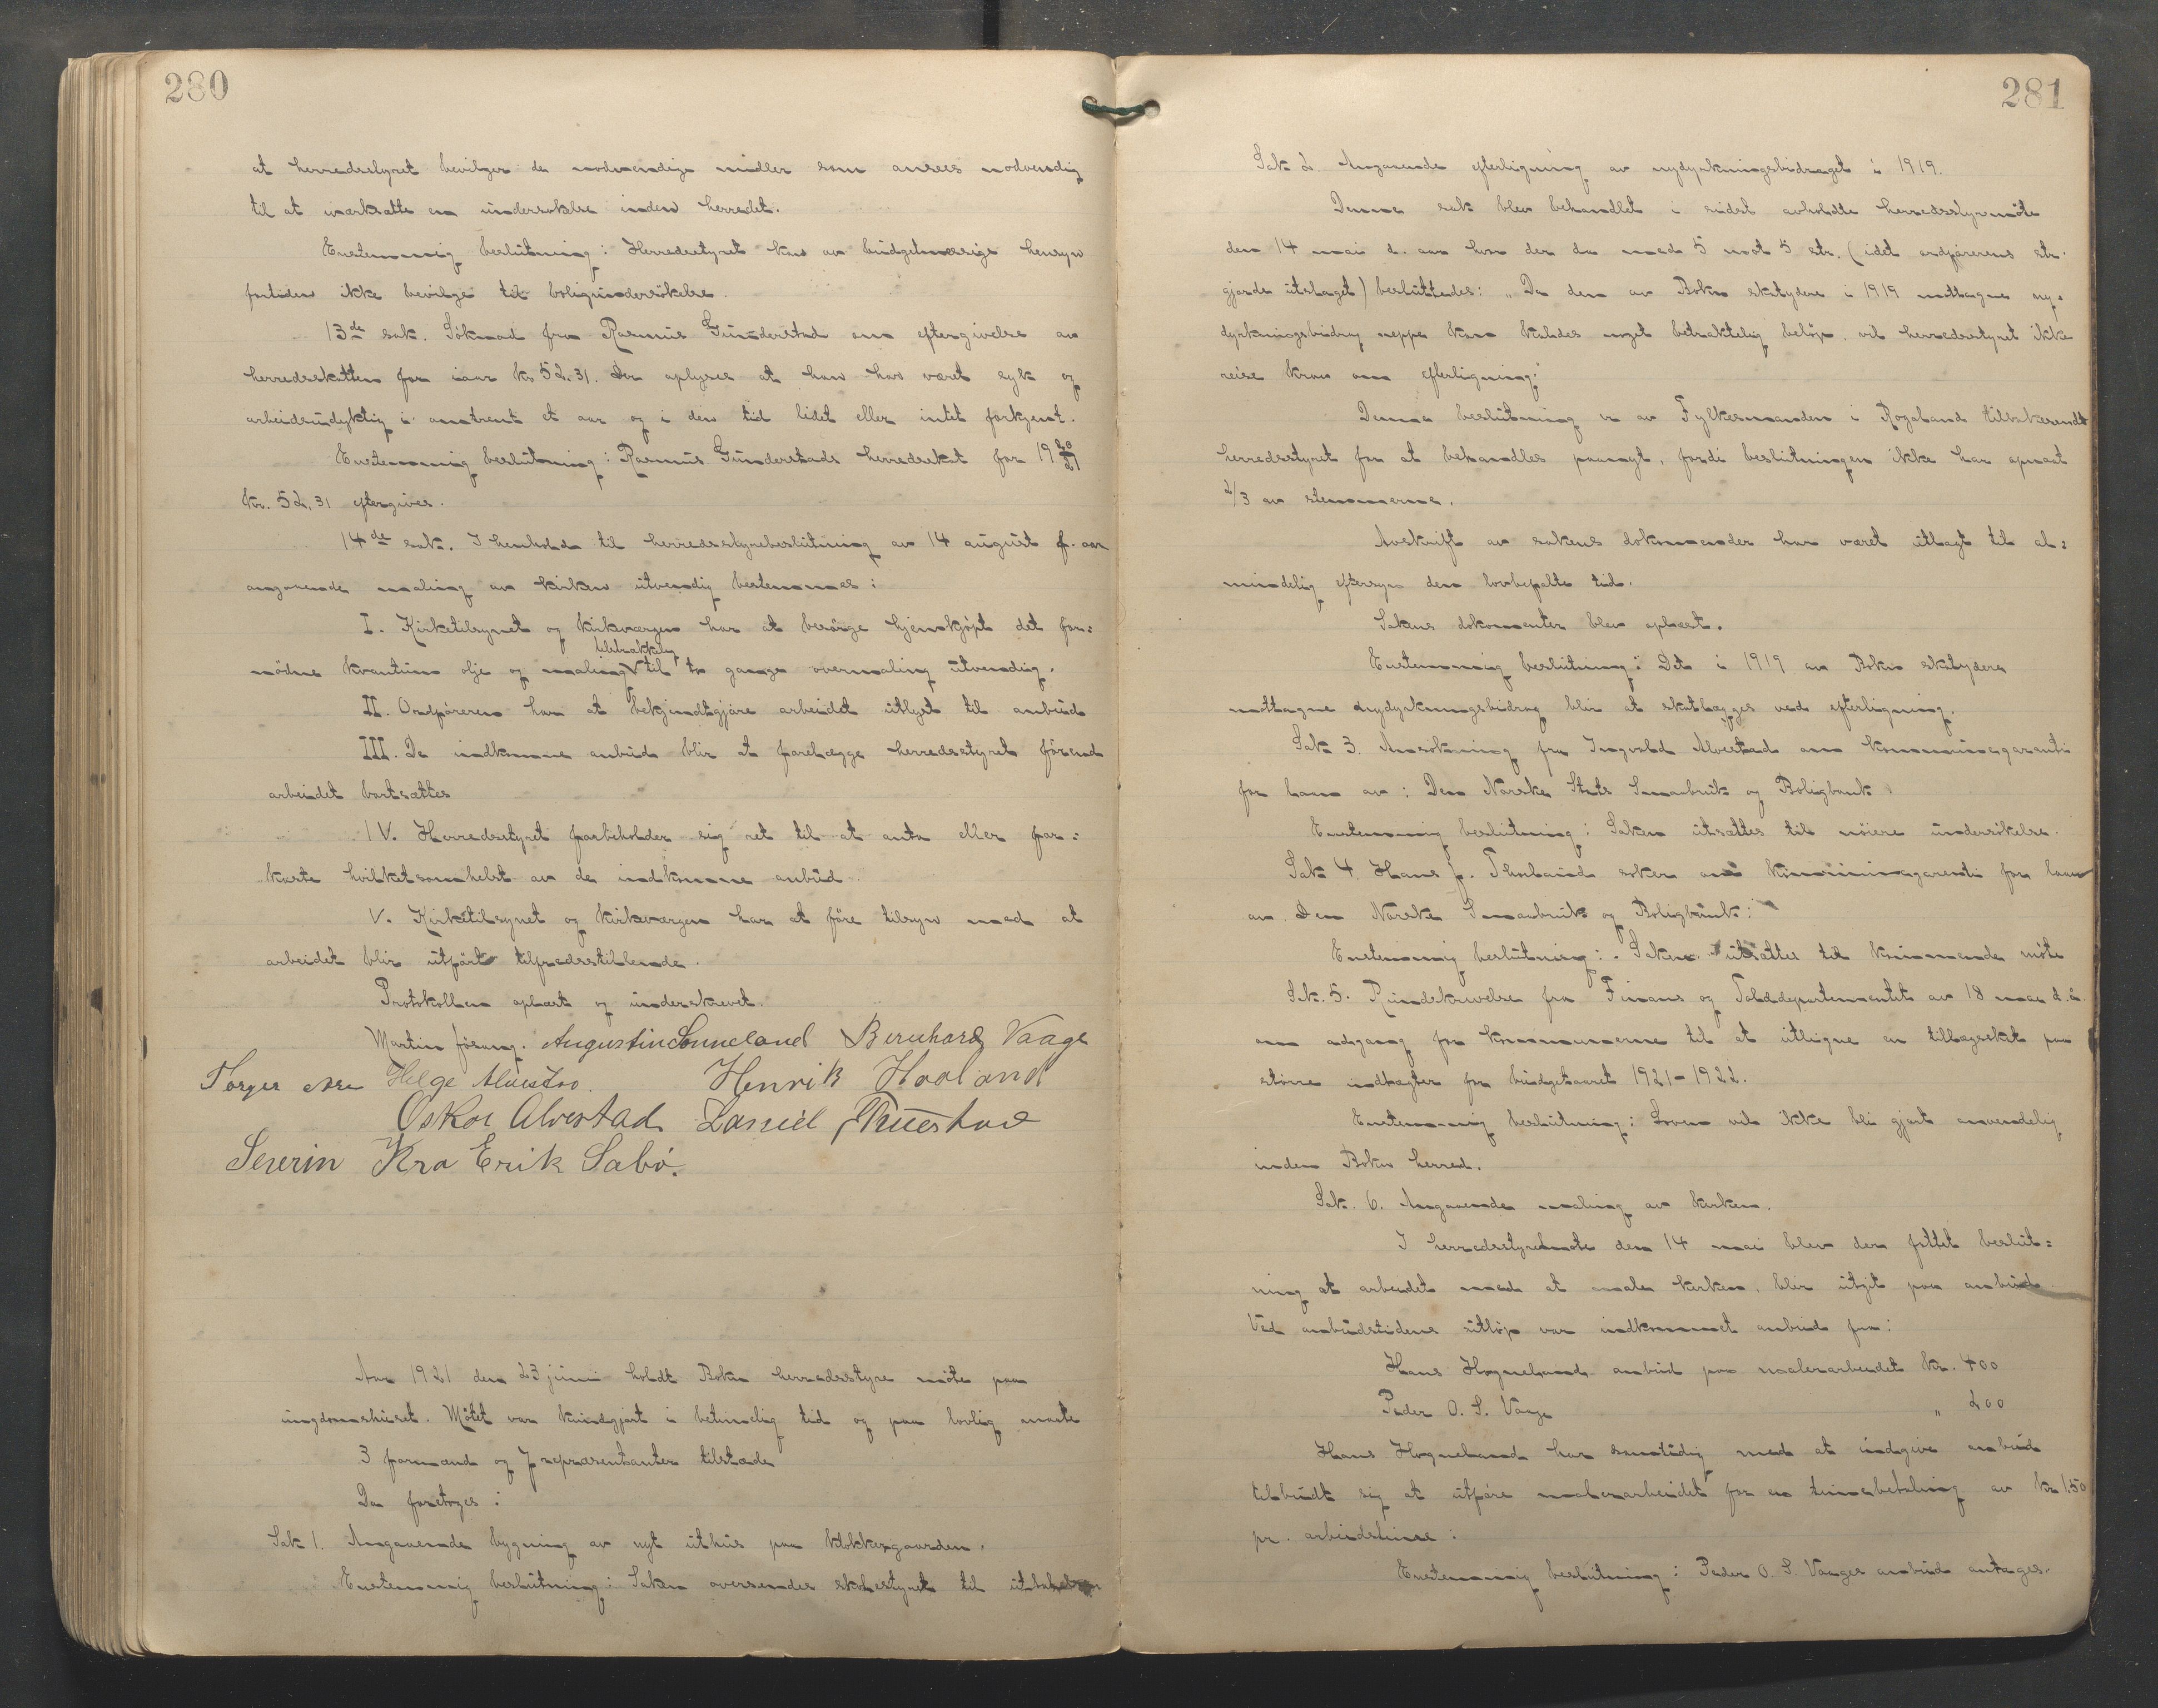 280
at herredsstyret bevilger de nodvendige midler som ansees nodvendig
til at iverksætte en undersokelse inden herredet.
Enstemmig beslutning: Herredsstyret kan av budgetmæssige hensyn
fortiden ikke bevilge til boligundersökelse.
13de sak. Söknad fra Rasmus Gunderstad om eftergivelse av
herredsskatten for iaar kr 52.31. Der oplyses at han har været syk og
arbeidsudyktig i omtrent et aar og i den tid lidet eller intet fortjent.
Enstemmig beslutning: Rasmus Gunderstads herredsskat for 1920/21
kr. 52,31 eftergives.
14de sak. I henhold til herredsstyrebeslutning av 14 august f. aar
angaaende maling av kirken utvendig bestemmes:
I. Kirketilsynet og kirkeværgen har at besörge hjemkjöpt det for=
tilstrækkelig
nödne kvantum olje og maling til to gange overmaling utvendig.
II. Ordföreren har at bekjendtgjöre arbeidet utlyst til anbud
III. De indkomne anbud blir at forelægge herredsstyret förend
arbeidet bortsættes
IV. Herredsstyret forbeholder sig ret til at anta eller for=
kaste hvilketsomhelst av de indkomne anbud.
V. Kirketilsynet og kirkeværgen har at före tilsyn med at
arbeidet blir utfört tilfredsstillende.
Protokollen oplæst og underskrevet.
Martin Jösang. Augustin Sunneland Bernhard Vaage
Torger Helge Henrik Haaland
Oskar Alvestad Daniel
Severin Kro Erik Sabö.
Aar 1921 den 23 juni holdt Bokn herredsstyre möte paa
ungdomshuset. Mötet var kundgjort i betimelig tid og paa lovlig maate
3 formænd og 7 repræsentanter tilstæde
Da foretoges:
Sak 1. Angaaende bygning av nyt uthus paa klokkergaarden.
Enstemmig beslutning: Saken oversendes skolestyret til uttalelse
281
Sak 2. Angaaende efterligning av nydyrkningsbidraget i 1919.
Denne sak blev behandlet i sidst avholdte herredsstyremöte
den 14 mai d. aar hvor der da med 5 mot 5 str. (idet ordförerens str.
gjorde utslaget) besluttedes: "Da den av Bokn skatydere i 1919 mottagne ny=
dyrkningsbidrag neppe kan kaldes noget betraktelig belöp, vil herredsstyret ikke
reise krav om efterligning."
Denne beslutning er av Fylkesmanden i Rogaland tilbakesendt
herredsstyret for at behandles paanyt, fordi beslutningen ikke har opnaat
2/3 av stemmerne.
Avskrift av sakens dokumenter har været utlagt til al=
mindelig eftersyn den lovbefalte tid.
Sakens dokumenter blev oplæst.
Enstemmig beslutning: Det i 1919 av Bokn skatydere
mottagne nydyrkningsbidrag blir at skatlægges ved efterligning.
Sak 3. Ansökning fra Ingvald Alvestad om kommunegaranti
for laan av: Den Norske Stats Smaabruk og Boligbank.
Enstemmig beslutning: Saken utsættes til nöiere undersökelse.
Sak 4. Hans J. söker om kommunegaranti for laan
av Den Norske Smaabruk og Boligbank:
Enstemmig beslutning: Saken utsættes til kommende möte
Sak. 5. Rundskrivelse fra Finans og Tolddepartementet av 18 mai d.a.
om adgang for kommunerne til at utligne en tillægsskat paa
större indtægter for budgetaaret 1921-1922.
Enstemmig beslutning: Loven vil ikke bli gjort anvendelig
inden Bokn herred.
Sak. 6. Angaaende maling av kirken.
I herredsstyremöte den 14 mai blev der fattet beslut=
ning at arbeidet med at male kirken, blir utgit paa anbud
Ved anbudstidens utlöp var indkommet anbud fra:
Hans Hogneland anbud paa malerarbeidet kr. 400
Peder O. S. Vaage " 200
Hans Hogneland har samtidig med at indgive anbud
tilbudt sig at utföre malerarbeidet for en timebetaling av kr 1.50
pr. arbeidstime:
Enstemmig beslutning: Peder O. S. Vaages anbud antages.